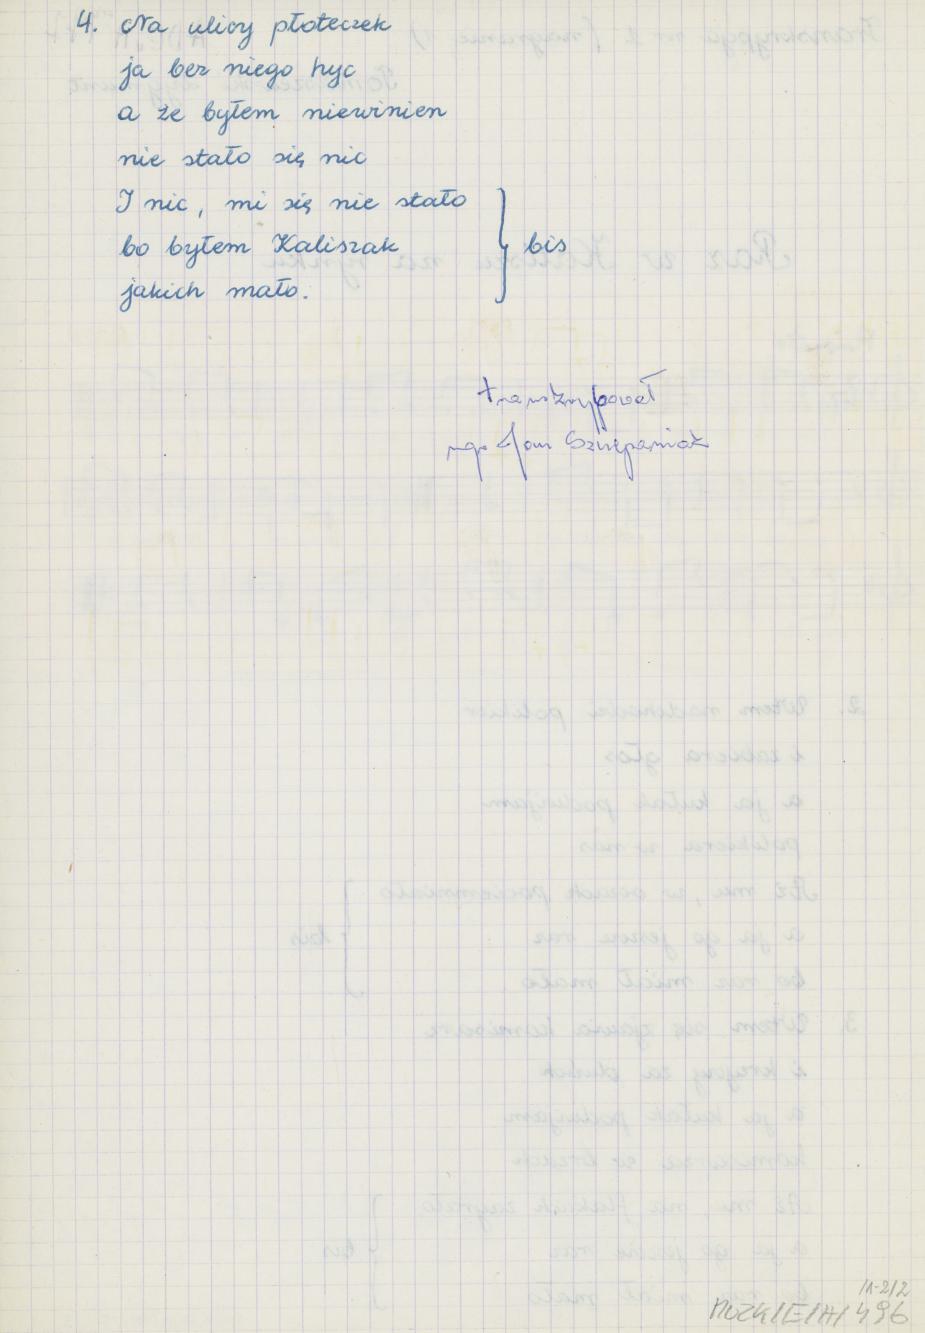 4. Na ulicy płoteczek
ja bez niego hyc
a że byłem niewinien
nie stało się nic
I nic, mi się nie stało
bo byłem Kaliszak } bis
jakich mało.
transkrypował
mgr Jan Szczepaniak
/1-2/2
MOZK/E/A/496